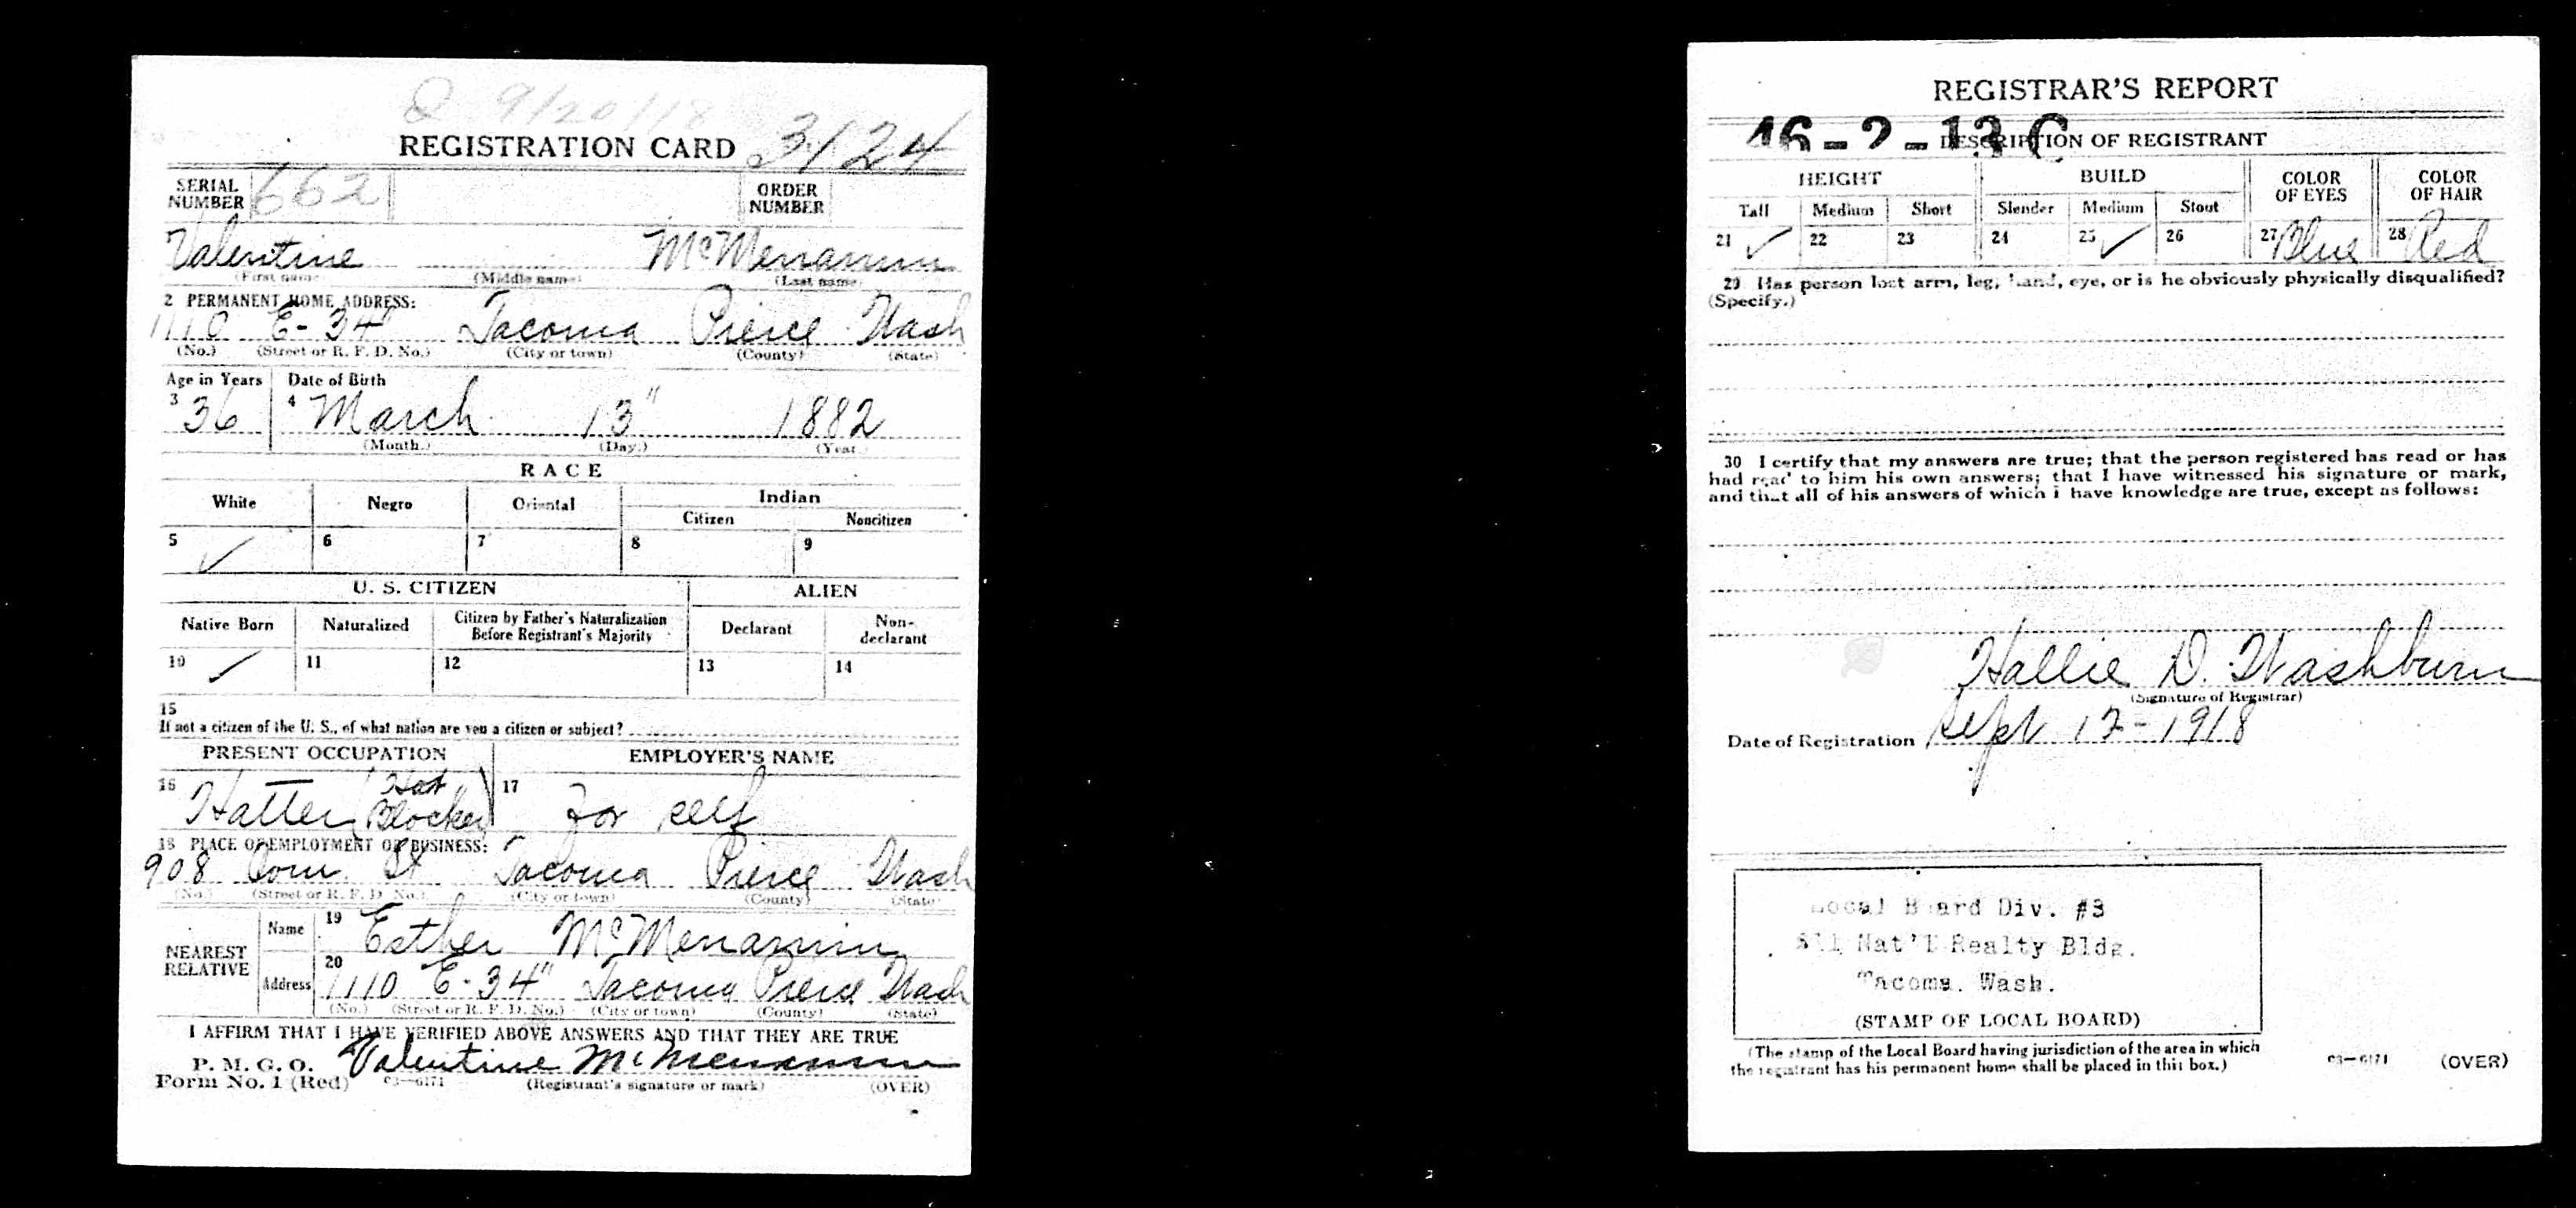 Q 9/20/18
REGISTRATION CARD 3124
SERIAL NUMBER 662 ORDER NUMBER
Valentine McMenamin
(First name) (Middle name) (Last name)
2 PERMANENT HOME ADDRESS:
1110 E-34" Tacoma Pierce Wash
(No.) (Street or R. F. D. No.) (City or town) (County) (State)
Age in Years Date of Birth
3 36 4 March 13" 1882
(Month.) (Day.) (Year.)
RACE
White Negro Oriental Indian
Citizen Noncitizen
5 ✓ 6 7 8 9
U. S. CITIZEN ALIEN
Native Born Naturalized Citizen by Father's Naturalization Before Registrant's Majority Declarant Non-declarant
10 ✓ 11 12 13 14
15
If not a citizen of the U. S., of what nation are you a citizen or subject?
PRESENT OCCUPATION EMPLOYER'S NAME
16 Hatter (Hat Blocker) 17 For self
18 PLACE OF EMPLOYMENT OR BUSINESS:
908 Com. St Tacoma Pierce Wash
(No.) (Street or R. F. D. No.) (City or town) (County) (State)
NEAREST RELATIVE
Name 19 Esther McMenamin
Address 20 1110 E-34" Tacoma Pierce Wash
(No.) (Street or R. F. D. No.) (City or town) (County) (State)
I AFFIRM THAT I HAVE VERIFIED ABOVE ANSWERS AND THAT THEY ARE TRUE
P. M. G. O. Valentine McMenamin
Form No. 1 (Red) 03—6171 (Registrant's signature or mark) (OVER)
REGISTRAR'S REPORT
46-2-13 C
DESCRIPTION OF REGISTRANT
HEIGHT BUILD COLOR OF EYES COLOR OF HAIR
Tall Medium Short Slender Medium Stout
21 ✓ 22 23 24 25 ✓ 26 27 Blue 28 Red
29 Has person lost arm, leg, hand, eye, or is he obviously physically disqualified?
(Specify.)
30 I certify that my answers are true; that the person registered has read or has
had read to him his own answers; that I have witnessed his signature or mark,
and that all of his answers of which I have knowledge are true, except as follows:
Hallie D. Washburn
(Signature of Registrar)
Date of Registration Sept 12-1918
Local Board Div. #3
Nat'l Realty Bldg.
Tacoma. Wash.
(STAMP OF LOCAL BOARD)
(The stamp of the Local Board having jurisdiction of the area in which
the registrant has his permanent home shall be placed in this box.)
03—6171 (OVER)